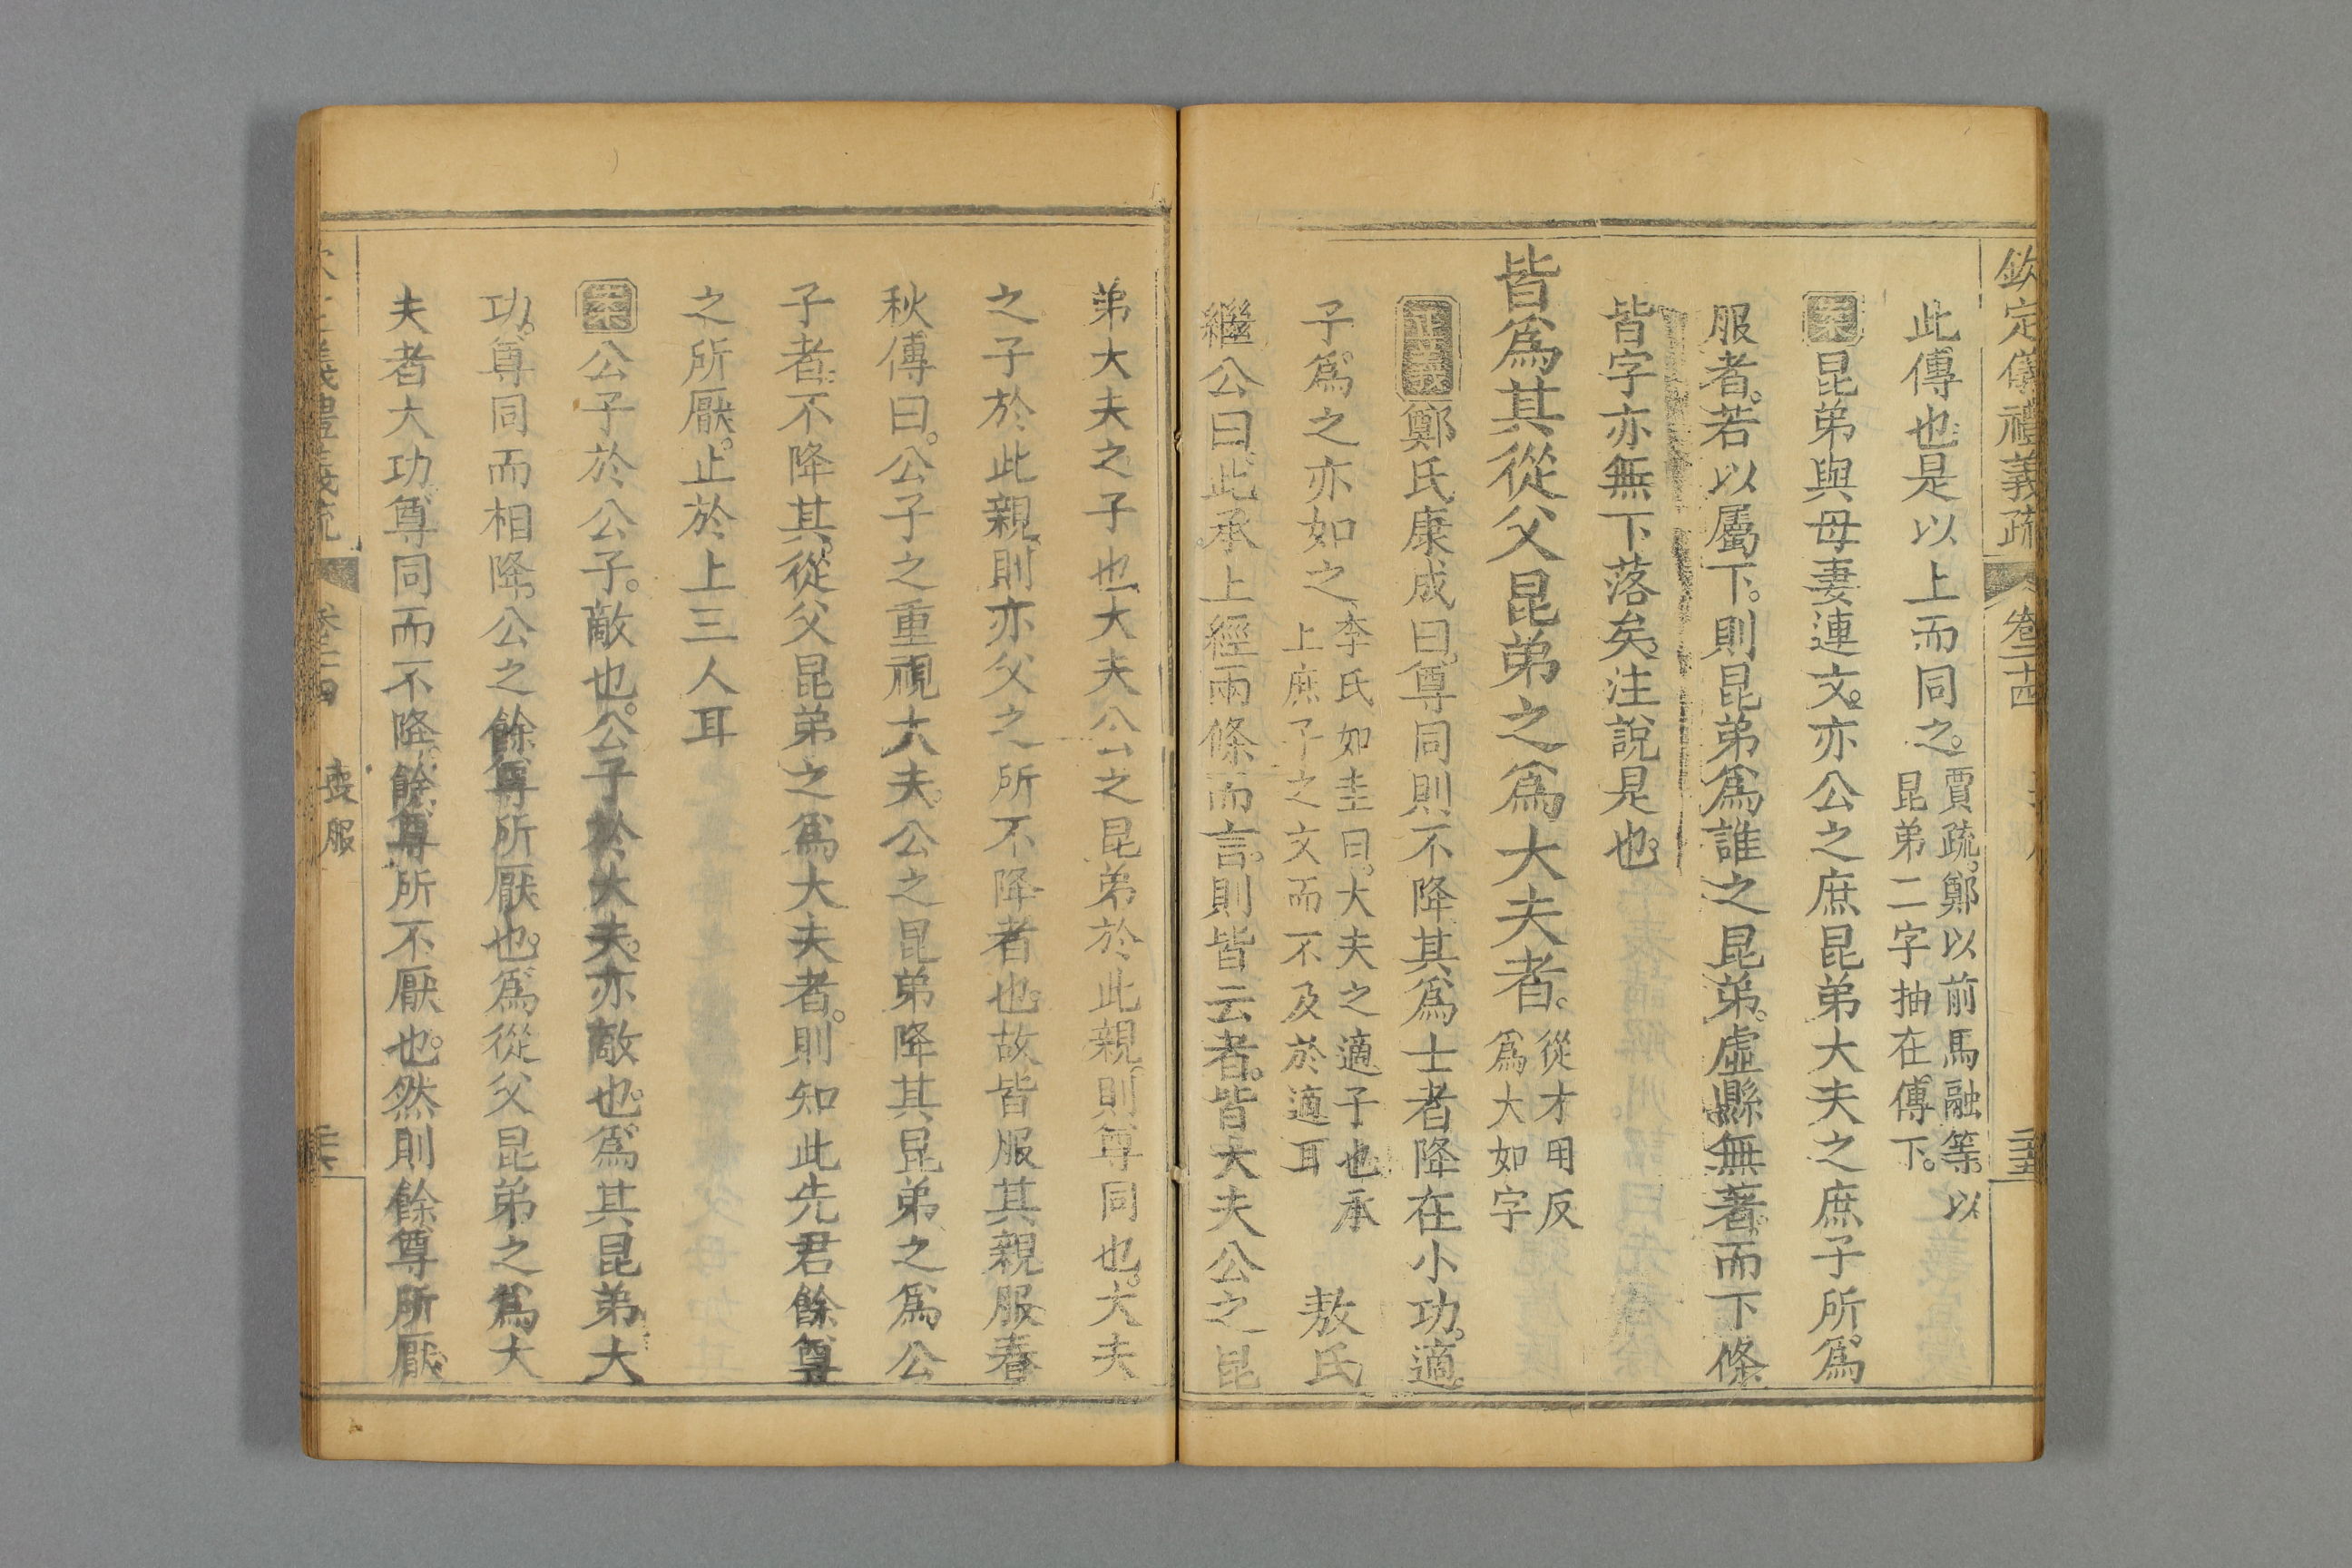 欽定儀禮義疏 卷二十四
此傳也是以上而同之。賈疏。鄭以前馬融等以
昆弟二字抽在傳下。
案昆弟與母妻連文。亦公之庶昆弟大夫之庶子所爲
服者。若以屬下。則昆弟爲誰之昆弟。虛縣無著。而下條
皆字亦無下落矣。注說是也。
皆爲其從父昆弟之爲大夫者。從才用反
爲大如字
正義鄭氏康成曰。尊同則不降其爲士者降在小功。適
子爲之亦如之。李氏如圭曰。大夫之適子也承
上庶子之文而不及於適耳
敖氏
繼公曰。此承上經兩條而言。則皆云者。皆大夫公之昆
弟大夫之子也。大夫公之昆弟於此親。則尊同也。大夫
之子於此親。則亦父之所不降者也。故皆服其親服。春
秋傳曰。公子之重視大夫。公之昆弟降其昆弟之爲公
子者。不降其從父昆弟之爲大夫者。則知此先君餘尊
之所厭。止於上三人耳
案公子於公子。敵也。公子於大夫。亦敵也。爲其昆弟大
功。尊同而相降。公之餘尊所厭也。爲從父昆弟之爲大
夫者大功。尊同而不降。餘尊所不厭也。然則餘尊所厭
義禮義疏 卷二十四 喪服